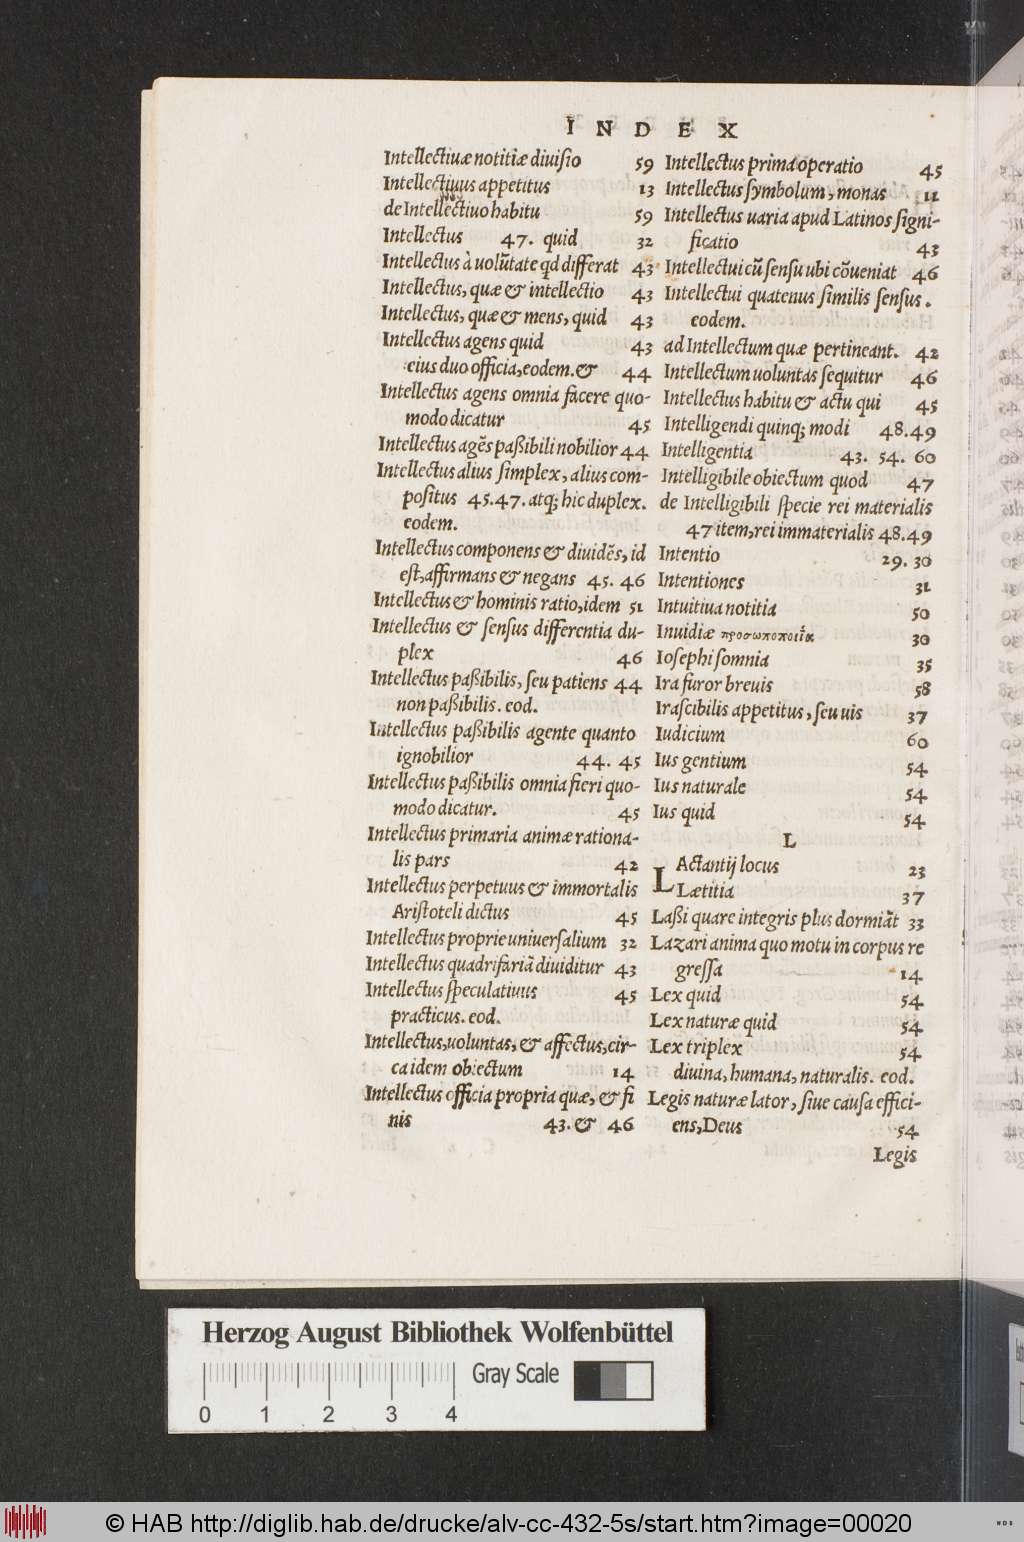 INDEX
Intellectiuæ notitiæ diuisio 59
Intellectiuus appetitus 13
de Intellectiuo habitu 59
Intellectus 47. quid 32
Intellectus à uolũtate qd differat 43
Intellectus, quæ & intellectio 43
Intellectus, quæ & mens, quid 43
Intellectus agens quid 43
eius duo officia, eodem. & 44
Intellectus agens omnia facere quo-
modo dicatur 45
Intellectus agẽs paßibili nobilior 44
Intellectus alius simplex, alius com-
positus 45.47. atq; hic duplex.
eodem.
Intellectus componens & diuidẽs, id
est, affirmans & negans 45. 46
Intellectus & hominis ratio, idem 51
Intellectus & sensus differentia du-
plex 46
Intellectus paßibilis, seu patiens 44
non paßibilis. eod.
Intellectus paßibilis agente quanto
ignobilior 44. 45
Intellectus paßibilis omnia fieri quo-
modo dicatur. 45
Intellectus primaria animæ rationa-
lis pars 42
Intellectus perpetuus & immortalis
Aristoteli dictus 45
Intellectus proprie uniuersalium 32
Intellectus quadrifariã diuiditur 43
Intellectus speculatiuus 45
practicus. eod.
Intellectus, uoluntas, & affectus, cir-
ca idem obiectum 14
Intellectus officia propria quæ, & fi
nis 43. & 46
Intellectus prima operatio 45
Intellectus symbolum, monas 11
Intellectus uaria apud Latinos signi-
ficatio 43
Intellectui cũ sensu ubi cõueniat 46
Intellectui quatenus similis sensus.
eodem.
ad Intellectum quæ pertineant. 42
Intellectum uoluntas sequitur 46
Intellectus habitu & actu qui 45
Intelligendi quinq; modi 48.49
Intelligentia 43. 54. 60
Intelligibile obiectum quod 47
de Intelligibili specie rei materialis
47 item, rei immaterialis 48.49
Intentio 29. 30
Intentiones 31
Intuitiua notitia 50
Inuidiæ προσωποποιΐα 30
Iosephi somnia 35
Ira furor breuis 58
Irascibilis appetitus, seu uis 37
Iudicium 60
Ius gentium 54
Ius naturale 54
Ius quid 54
L
LActantij locus 23
Lætitia 37
Laßi quare integris plus dormiãt 33
Lazari anima quo motu in corpus re
gressa 14
Lex quid 54
Lex naturæ quid 54
Lex triplex 54
diuina, humana, naturalis. eod.
Legis naturæ lator, siue causa effici-
ens, Deus 54
Legis
Herzog August Bibliothek Wolfenbüttel
Gray Scale
0 1 2 3 4
© HAB http://diglib.hab.de/drucke/alv-cc-432-5s/start.htm?image=00020